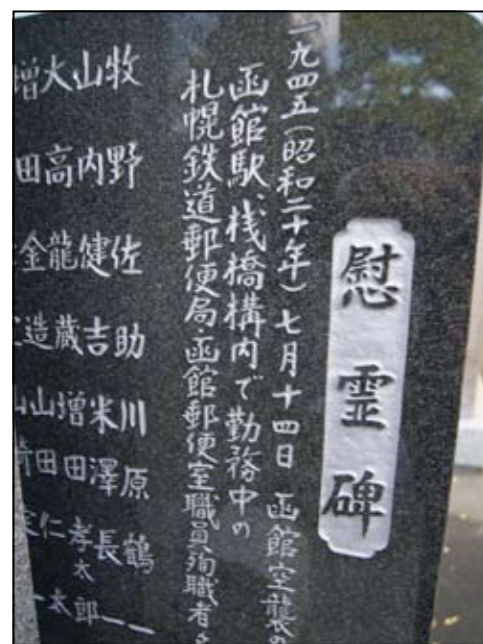 慰霊碑
一九四五(昭和二十年)七月十四日 函館空襲の
函館駅、桟橋構内で勤務中の
札幌鉄道郵便局・函館郵便室職員殉職者
牧野佐助 川原鶴一
山内健吉 米澤長一
大高龍蔵 増田孝太郎
増田金造 山田仁太